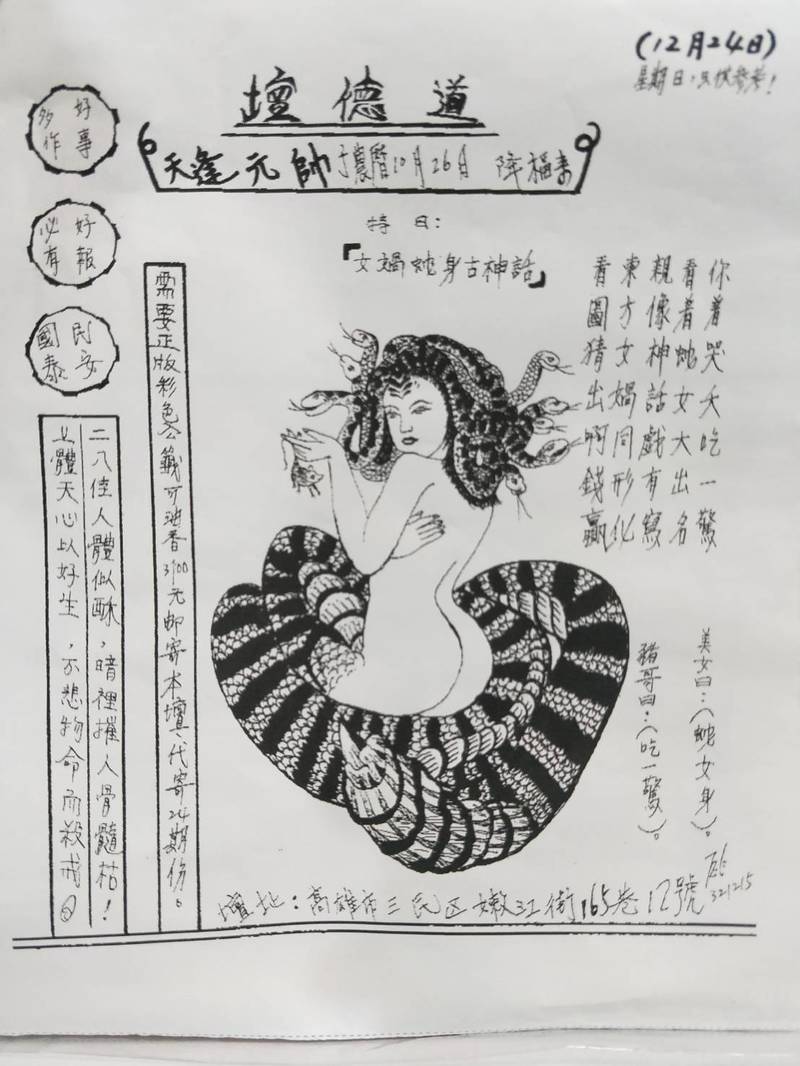 (12月24日)
星期日,只供參考!
道德壇
天逢元帥于農曆10月26日 降福壽
特曰:
「女媧蛇身古神話」
好事
多作
好報
必有
民安
國泰
你着哭夭吃一驚
看着蛇女大出名
親像神話戲有寫
東方女媧同形化
看圖猜出啊錢贏
需要正版彩色公籤可油香3900元郵寄本壇代寄24期份。
二八佳人體似酥,暗裡摧人骨髓枯!
上體天心以好生,不想物命而殺戒
美女曰:(蛇女身)。
豬哥曰:(吃一驚)。
壇地:高雄市三民区嫩江街165巷12號
321215